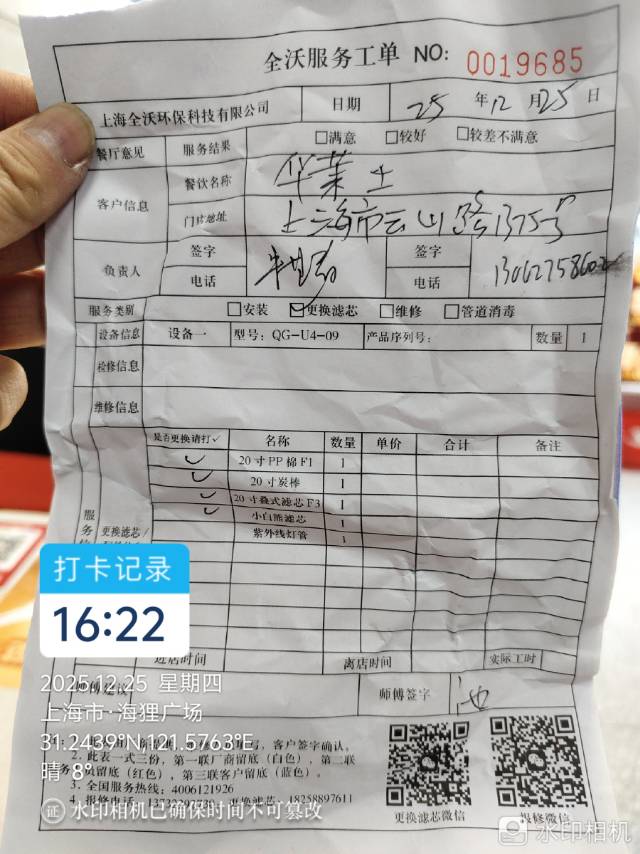 全沃服务工单 NO: 0019685
上海全沃环保科技有限公司 日期 25 年 12 月 25 日
餐厅意见 服务结果 □满意 □较好 □较差不满意
客户信息 餐饮名称 华莱士
门店地址 上海市云山路1375号
负责人 签字 签字
电话 电话
服务类别 □安装 ☑更换滤芯 □维修 □管道消毒
设备信息 设备一 型号: QG-U4-09 产品序列号: 数量 1
检修信息
维修信息
是否更换请打✓ 名称 数量 单价 合计 备注
✓ 20寸PP棉F1 1
✓ 20寸炭棒 1
✓ 20寸叠式滤芯F3 1
✓ 小白熊滤芯 1
紫外线灯管 1
服务信 更换滤芯/
打卡记录
16:22
进店时间 离店时间 实际工时
师傅建议 师傅签字
2025.12.25 星期四
上海市·海狸广场
31.2439°N,121.5763°E
晴 8°
客户签字确认。
2. 此表一式三份, 第一联厂商留底(白色), 第二联
留底(红色), 第三联客户留底(蓝色)。
3. 全国服务热线: 4006121926
4. 报修电话: 更换滤芯: 18258897611
更换滤芯微信 报修微信
证 水印相机已确保时间不可篡改
水印相机